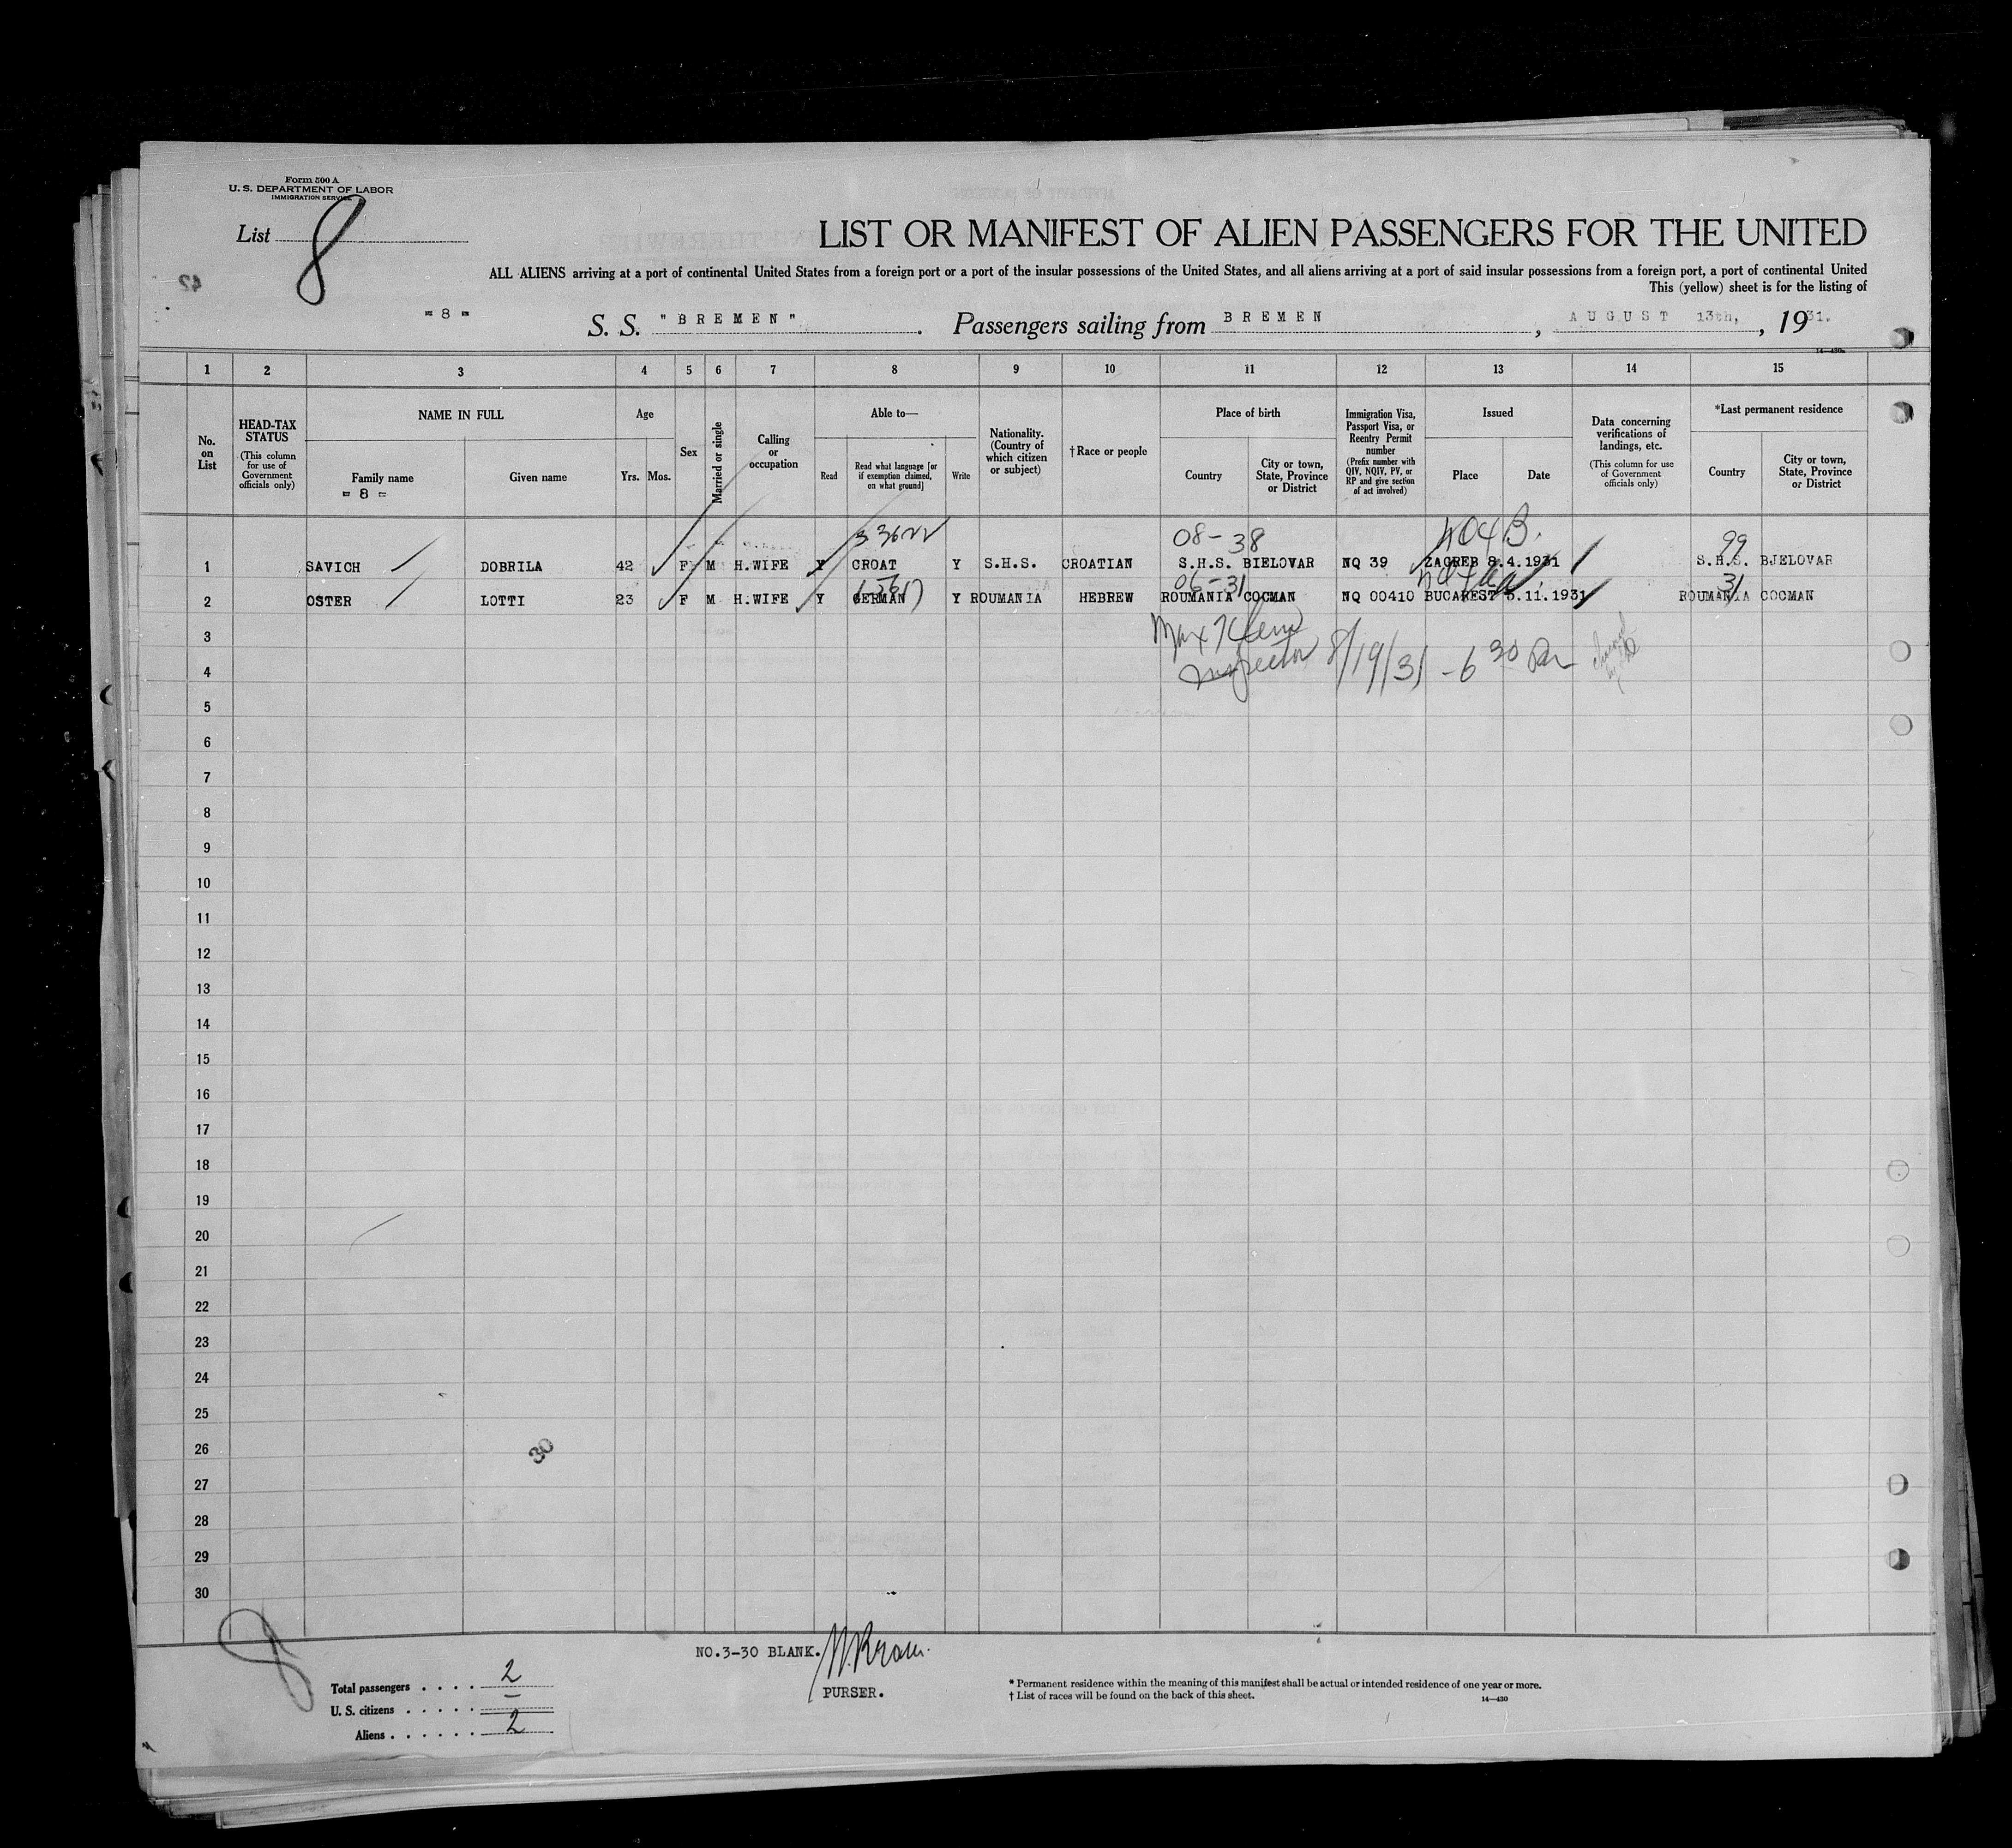 Form 500 A
U. S. DEPARTMENT OF LABOR
IMMIGRATION SERVICE
List 8
LIST OR MANIFEST OF ALIEN PASSENGERS FOR THE UNITED
ALL ALIENS arriving at a port of continental United States from a foreign port or a port of the insular possessions of the United States, and all aliens arriving at a port of said insular possessions from a foreign port, a port of continental United
This (yellow) sheet is for the listing of
= 8 = S. S. "BREMEN". Passengers sailing from BREMEN, AUGUST 13th, 1931.
14—430a
1 2 3 4 5 6 7 8 9 10 11 12 13 14 15
No. on List
HEAD-TAX STATUS (This column for use of Government officials only)
NAME IN FULL
Family name
= 8 =
Given name
Age
Yrs. Mos.
Sex
Married or single
Calling or occupation
Able to—
Read
Read what language [or if exemption claimed, on what ground]
Write
Nationality. (Country of which citizen or subject)
†Race or people
Place of birth
Country
City or town, State, Province or District
Immigration Visa, Passport Visa, or Reentry Permit number (Prefix number with QIV, NQIV, PV, or RP and give section of act involved)
Issued
Place
Date
Data concerning verifications of landings, etc. (This column for use of Government officials only)
*Last permanent residence
Country
City or town, State, Province or District
08-38 404B. 99
1 SAVICH DOBRILA 42 F M H.WIFE Y CROAT Y S.H.S. CROATIAN S.H.S. BIELOVAR NQ 39 ZAGREB 8.4.1931 S.H.S. BJELOVAR
06-31 31
2 OSTER LOTTI 23 F M H.WIFE Y GERMAN Y ROUMANIA HEBREW ROUMANIA COCMAN NQ 00410 BUCAREST 5.11.1931 ROUMANIA COCMAN
3 Max Klein
4 Inspector 8/19/31 - 6 30 Pm
5
6
7
8
9
10
11
12
13
14
15
16
17
18
19
20
21
22
23
24
25
26
30
27
28
29
30
8
NO.3-30 BLANK.
PURSER.
Total passengers . . . . 2
U. S. citizens . . . . . —
Aliens . . . . . . 2
* Permanent residence within the meaning of this manifest shall be actual or intended residence of one year or more.
† List of races will be found on the back of this sheet.
14—430